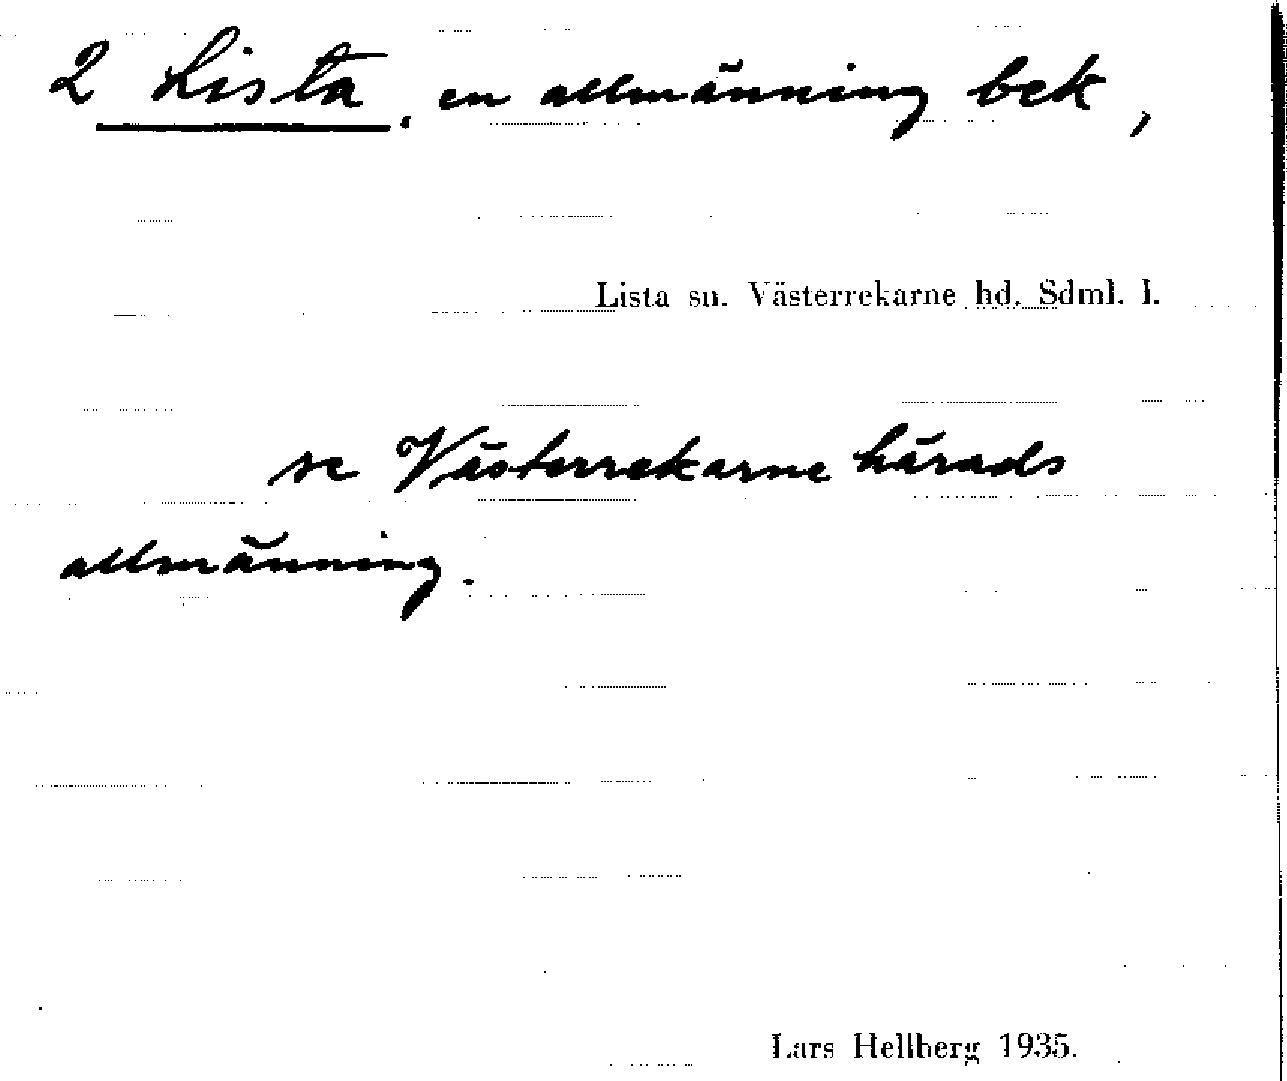 2 Lista, en allmänning bek,
Lista sn. Västerrekarne hd. Sdml. l.
se Västerrekarne härads
allmänning.
Lars Hellberg 1935.